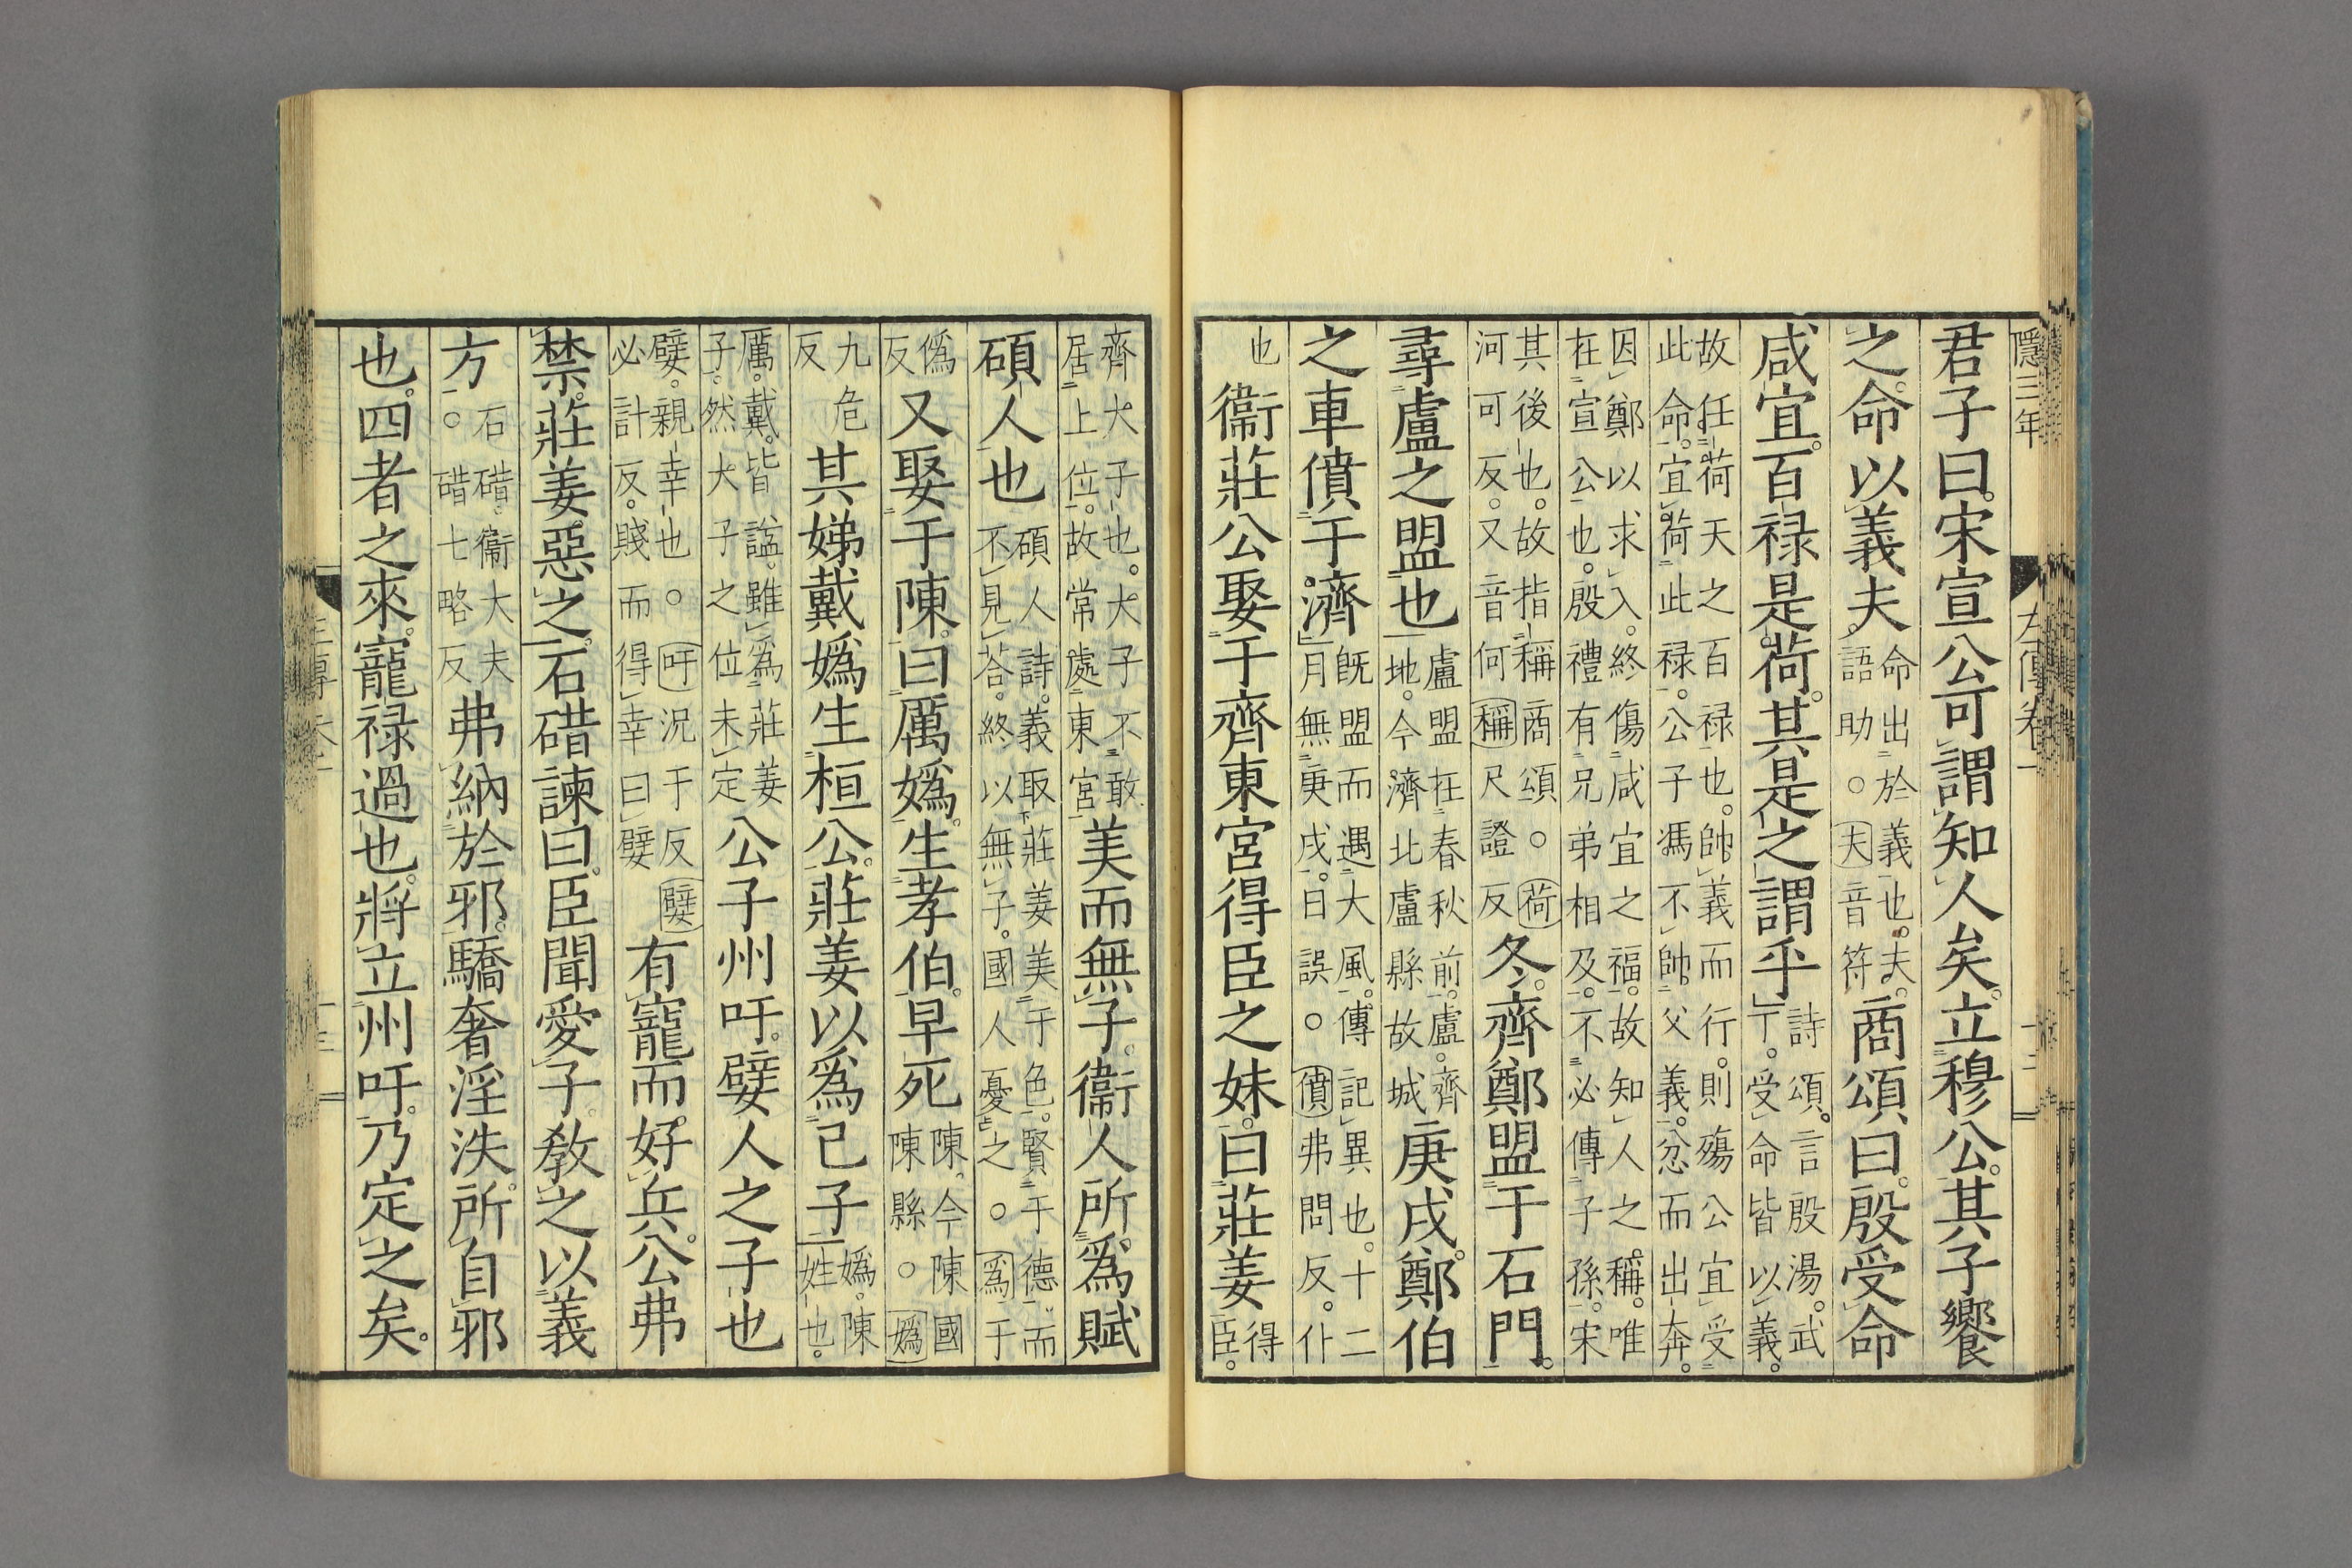 隱三年
左傳卷一
十二
君子曰。宋宣公可謂知人矣。立穆公。其子饗
之。命以義夫。命出於義也。夫。語助○夫音符商頌曰。殷受命
咸宜。百祿是荷。其是之謂乎詩頌。言殷湯。武丁。受命皆以義。
故任荷天之百祿也。帥義而行。則殤公宜受此命。宜荷此祿。公子馮不帥父義。忿而出奔。
因鄭以求入。終傷咸宜之福。故知人之稱。唯在宣公也。殷禮有兄弟相及。不必傳子孫。宋
其後也。故指稱商頌○荷河可反。又音何稱尺證反冬。齊鄭盟于石門。
尋盧之盟也盧盟在春秋前。盧。齊地。今濟北盧縣故城庚戌。鄭伯
之車僨于濟既盟而遇大風。傳記異也。十二月無庚戌。日誤○僨弗問反。仆
也衞莊公娶于齊東宮得臣之妹。曰莊姜得臣。
齊大子也。大子不敢居上位。故常處東宮美而無子。衞人所爲賦
碩人也碩人詩。義取莊姜美于色。賢于德。而不見荅。終以無子。國人憂之○爲于
僞反又娶于陳。曰厲嬀。生孝伯。早死陳。今陳國陳縣○嬀
九危反其娣戴嬀生桓公。莊姜以爲己子嬀。陳姓也。
厲。戴。皆謚。雖爲莊姜子。然大子之位未定公子州吁。嬖人之子也
嬖。親幸也○吁況于反嬖必計反。賤而得幸曰嬖有寵而好兵。公弗
禁。莊姜惡之。石碏諫曰。臣聞愛子。敎之以義
方石碏。衞大夫○碏七略反弗納於邪。驕奢淫泆。所自邪
也。四者之來。寵祿過也。將立州吁。乃定之矣。